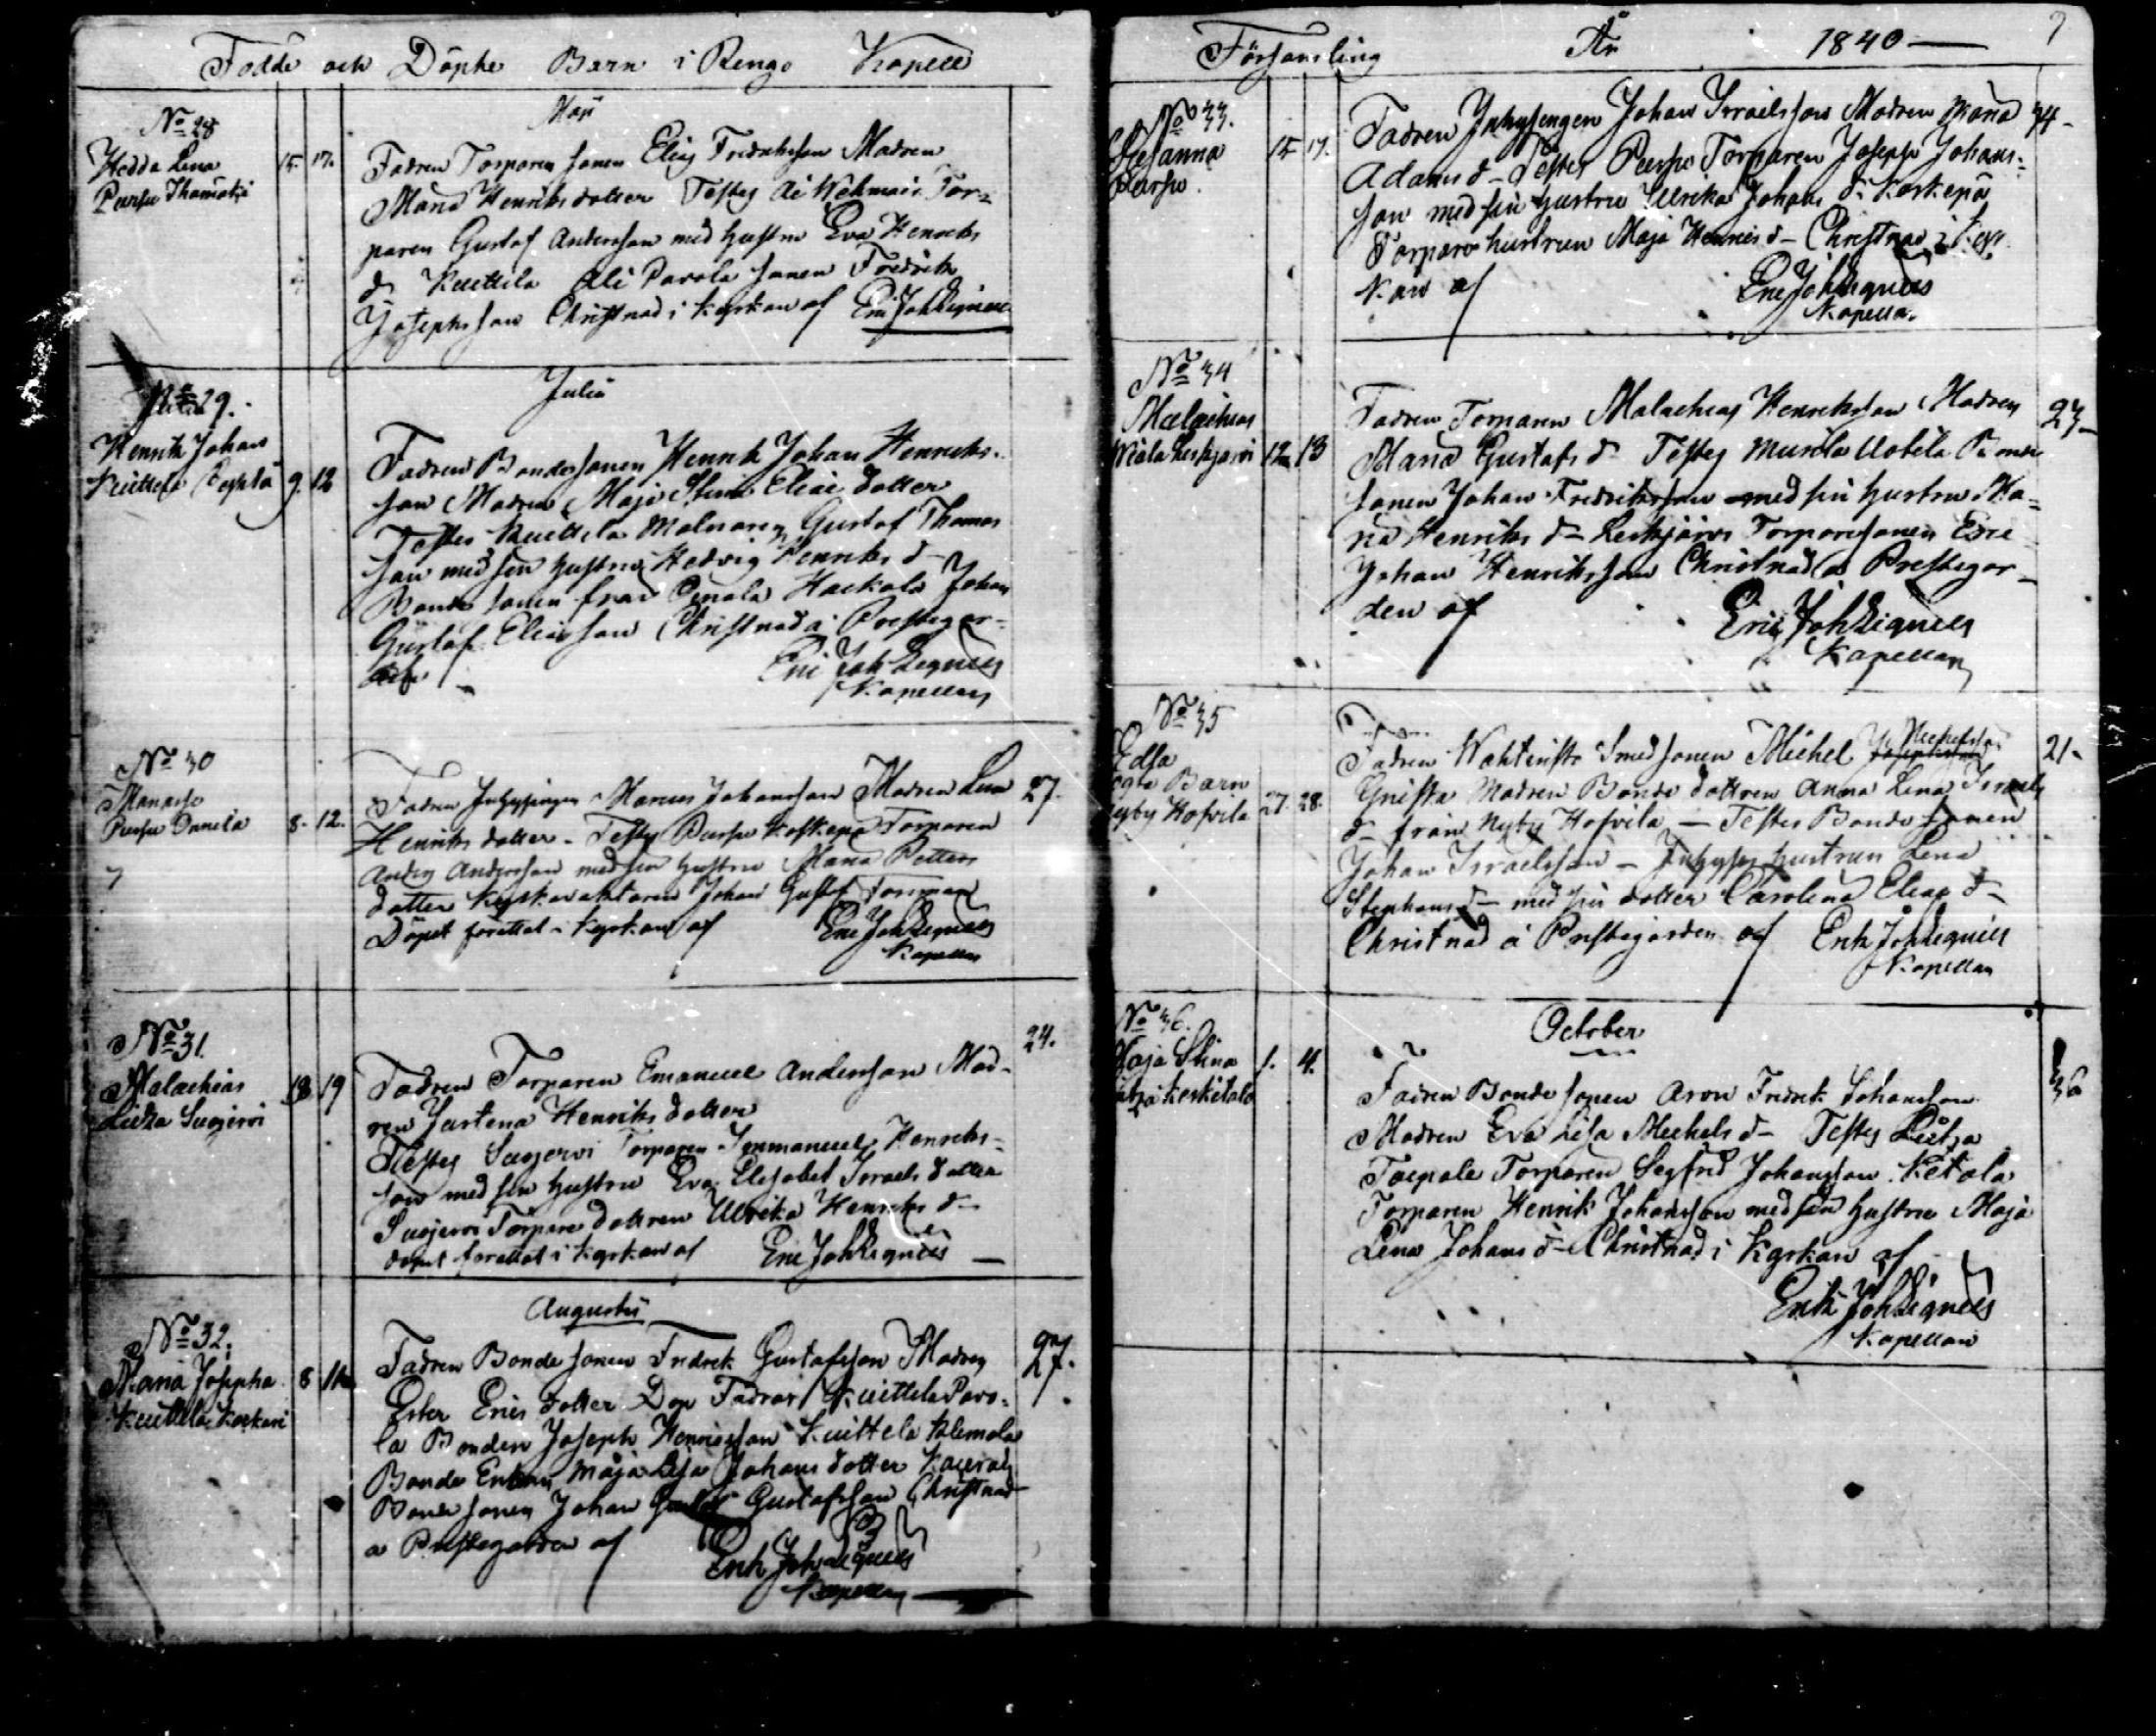 Födde och Döpte Barn i Rengo Kapell
Maji
No 28
Hedda Lena
15. 17.
Fadren Torpare sonen Elias Fredriksson Modren
Maria Henriks dotter Testes
paren Gustaf Andersson med hustru Eva Henriks
d Kuittila Ali Pavola sonen Fredrik
Josephsson Christnad i Kyrkan af
Julii
No 29.
Henrik Johan
Kuittila
9. 12
Fadren Bondesonen Henrik Johan Henriks-
son Modren Maja Stina Eliæ dotter
Testes Kuittila Gustaf Thomas
son med sin hustru Hedvig Henriks d-
Bonde sonen från Johan
Gustaf Eliasson Christnad å Prestegår-
Eric Joh Lignell
Kapellan
No 30
Manasse
8. 12.
Fadren Inhysingen Johansson Modren Lena
27.
Henriks dotter - Testes Koskenpä Torparen
Anders Andersson med sin hustru Maria Petters
dotter Kyrkovaktaren Johan Gustaf
Döpet förrättat i Kyrkan af Eric Joh Lignell
Kapellan
No 31.
Malachias
Suojervi
18 19
Fadren Torparen Emanuel Andersson Mod-
24.
ren Justina Henriks dotter
Testes Suojervi Torparen Immanuel Henriks-
son med sin hustru Eva Elisabet Israels dotter
Suojervi Torpare dottren Ulrika Henriks d-
döpet förrättat i Kyrkan af Eric Joh Lignell
Augusti
No 32.
Maria Josepha
Kuittila
8 11
Fadren Bonde sonen Fredrik Gustafsson Modren
27.
Ester Erics dotter Dop Fadrar Kuittila Pavo-
la Bonden Joseph Henricsson Kuittila Klemola
Bonde Enkan Maja Lisa Johans dotter
Bonde sonen Johan Gustafsson Christnad
å Prestegården af
Erik Joh Lignell
Kapellan
Församling År 1840
7
No 33.
Susanna
15 17.
Fadren Inhysingen Johan Israelsson Modren Maria
34-
Adams d- Testes Torparen Joseph Johans-
son med sin hustru Ulrika Johans d- Koskenpä
Torpare hustrun Maja Henrics d- Christnad i Kyr-
kan af
Eric Joh Lignell
Kapellan
No 34
Malachias
12 13
Fadren Torparen Malachias Henriksson Modren
23-
Maria Gustafs d- Testes Uotila Bonde
sonen Johan Fredriksson med sin hustru Ma-
ria Henriks d- Leskjärvi Torparesonen Eric
Johan Henriksson Christnad å Prestegår-
den af
Eric Joh Lignell
Kapellan
No 35
Edla
Ägta Barn
Nyby Hofvila
27. 28.
Fadren Smed sonen Michel
21-
Gnista Modren Bonde dottren Anna Lena Israels
d- från Nyby Hofvila - Testes Bonde sonen
Johan Israelsson - Inhyses hustrun Lena
Stephans d- med sin dotter Carolina Elias d-
Christnad å Prestegården af Erik Joh Lignell
Kapellan
October
No 36.
Maja Stina
Keskitalo
1. 4.
Fadren Bonde sonen Aron Fredrik Johansson
36
Modren Eva Lisa Michels d- Testes
Torparen Segfrid Johansson Ketola
Torparen Henrik Johansson med sin hustru Maja
Lena Johans d- Christnad i Kyrkan af
Erik Joh Lignell
Kapellan